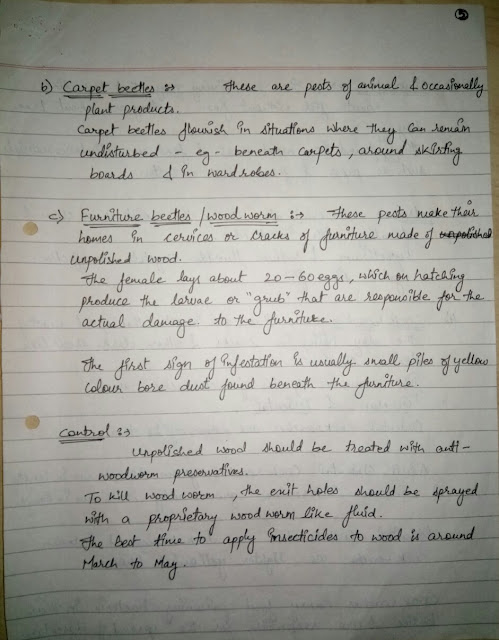 5
b) Carpet beetles :→ These are pests of animal & occasionally
plant products.
Carpet beetles flourish in situations where they can remain
undisturbed - eg - beneath carpets, around skirting
boards & in wardrobes.
c) Furniture beetles / wood worm :→ These pests make their
homes in cervices or cracks of furniture made of unpolished
unpolished wood.
The female lays about 20-60 eggs, which on hatching
produce the larvae or "grub" that are responsible for the
actual damage to the furniture.
The first sign of infestation is usually small piles of yellow
colour bore dust found beneath the furniture.
Control :→
unpolished wood should be treated with anti-
woodworm preservatives.
To kill wood worm, the exit holes should be sprayed
with a proprietary wood worm like fluid.
The best time to apply insecticides to wood is around
March to May.